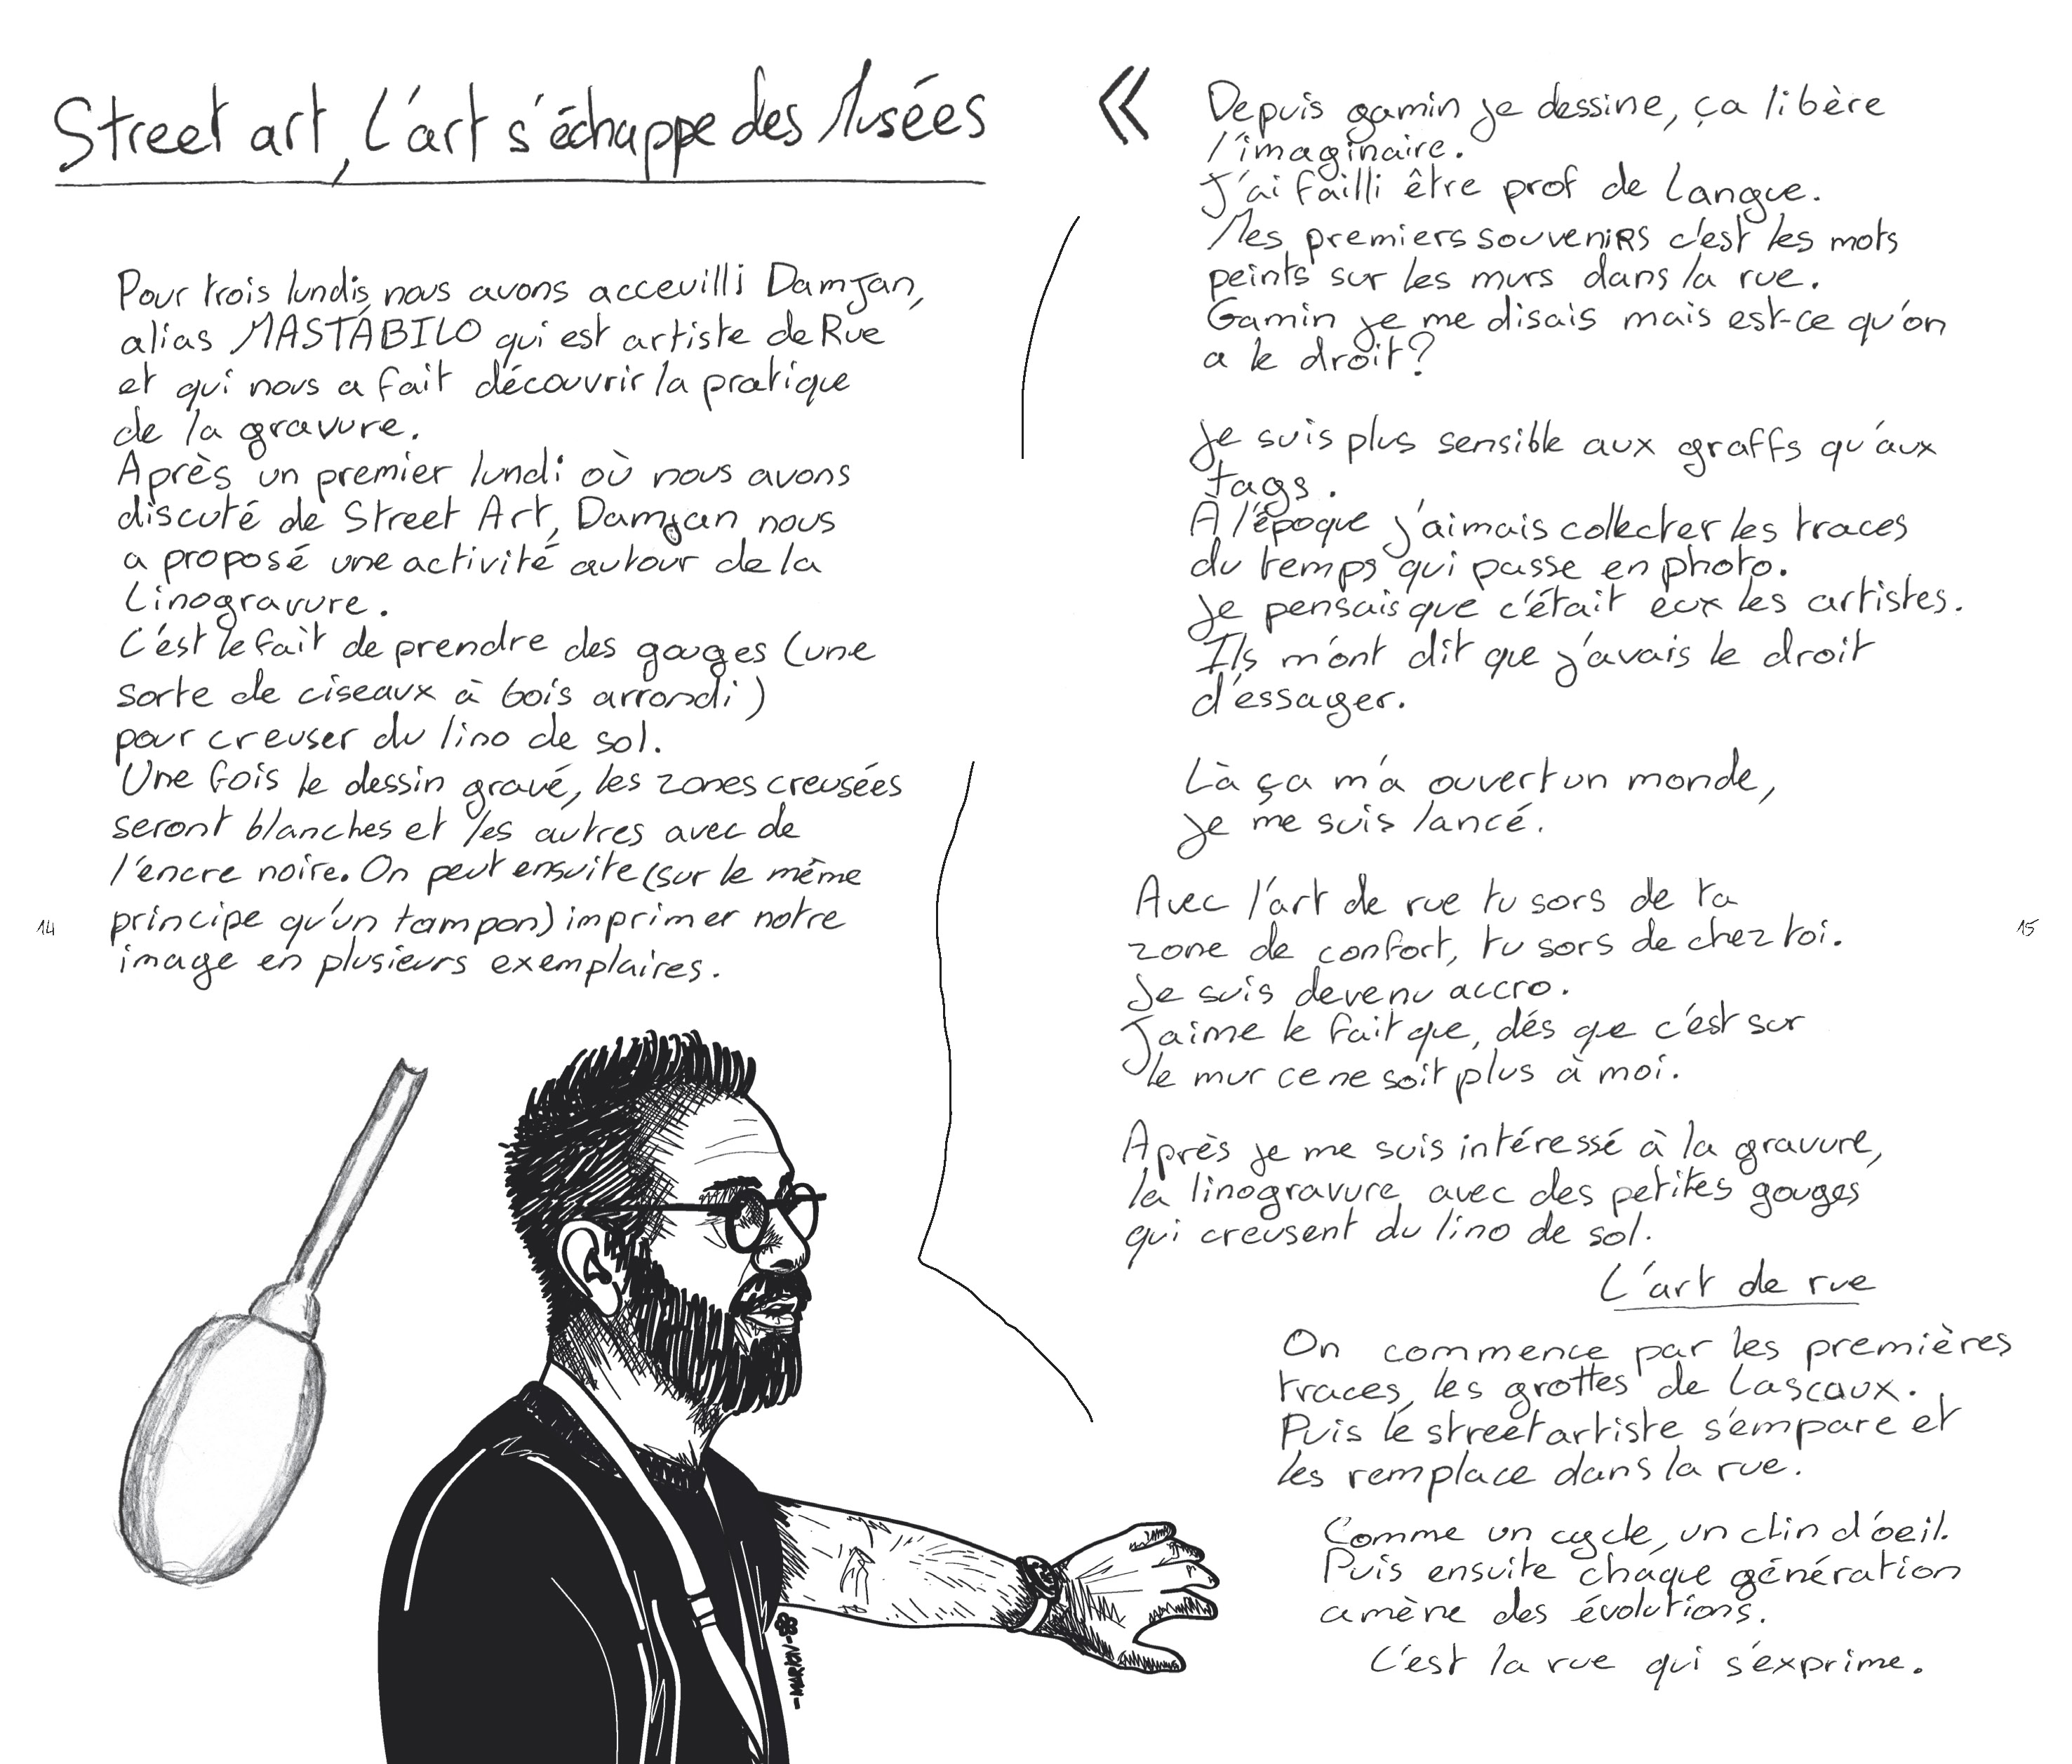 Street art, l'art s'échappe des Musées
Pour trois lundis nous avons acceuilli Damjan,
alias MASTABILO qui est artiste de Rue
et qui nous a fait découvrir la pratique
de la gravure.
Après un premier lundi où nous avons
discuté de Street Art, Damjan nous
a proposé une activité autour de la
Linogravure.
C'est le fait de prendre des gouges (une
sorte de ciseaux à bois arrondi)
pour creuser du lino de sol.
Une fois le dessin gravé, les zones creusées
seront blanches et les autres avec de
l'encre noire. On peut ensuite (sur le même
principe qu'un tampon) imprimer notre
image en plusieurs exemplaires.
14
-MARION-
«
Depuis gamin je dessine, ça libère
l'imaginaire.
J'ai failli être prof de langue.
Mes premiers souvenirs c'est les mots
peints sur les murs dans la rue.
Gamin je me disais mais est-ce qu'on
a le droit?
Je suis plus sensible aux graffs qu'aux
tags.
À l'époque j'aimais collecter les traces
du temps qui passe en photo.
Je pensais que c'était eux les artistes.
Ils m'ont dit que j'avais le droit
d'essayer.
Là ça m'a ouvert un monde,
je me suis lancé.
Avec l'art de rue tu sors de ta
zone de confort, tu sors de chez toi.
Je suis devenu accro.
J'aime le fait que, dés que c'est sur
le mur ce ne soit plus à moi.
Après je me suis intéressé à la gravure,
la linogravure avec des petites gouges
qui creusent du lino de sol.
L'art de rue
On commence par les premières
traces, les grottes de Lascaux.
Puis le street artiste s'empare et
les remplace dans la rue.
Comme un cycle, un clin d'oeil.
Puis ensuite chaque génération
amène des évolutions.
C'est la rue qui s'exprime.
15